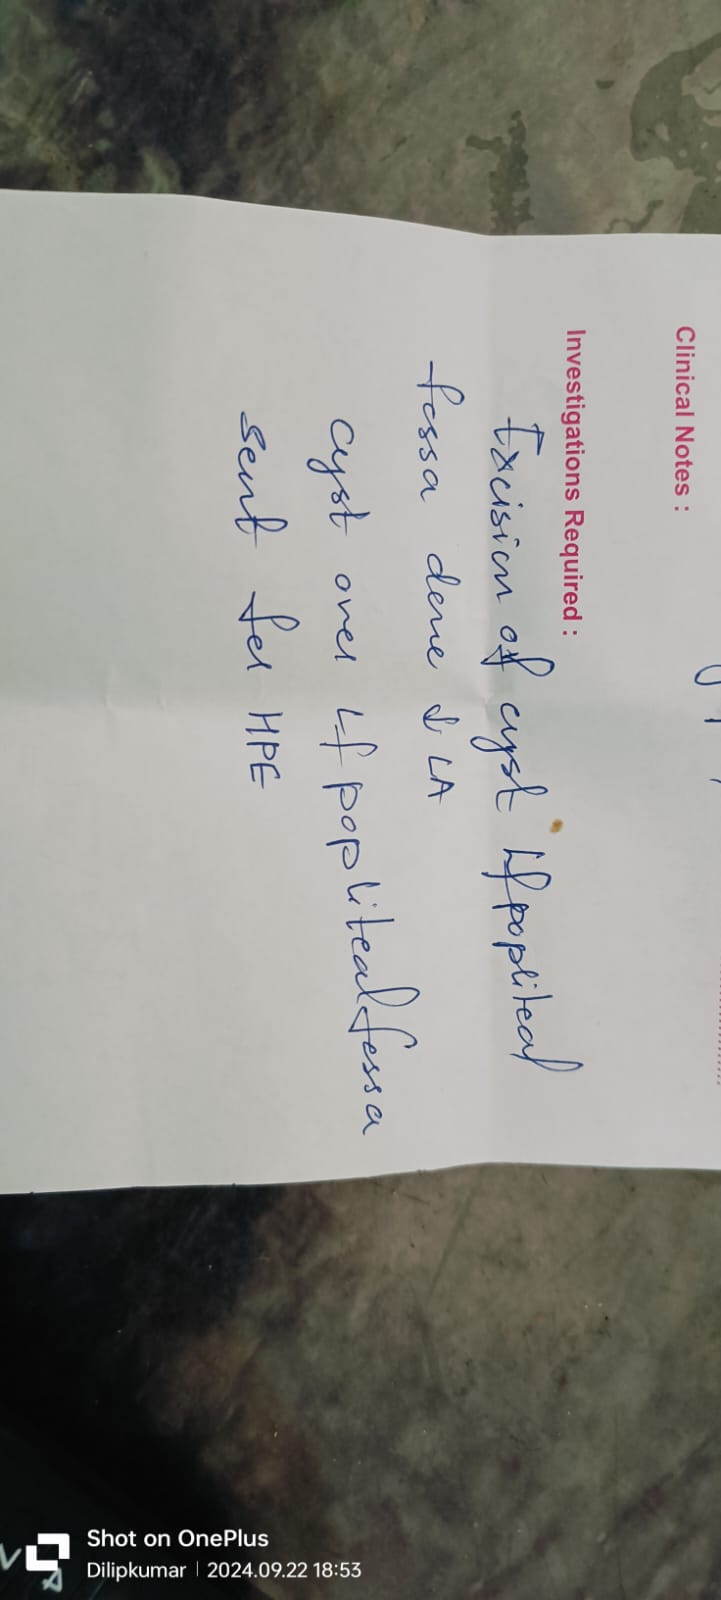 Clinical Notes :
Investigations Required :
Excision of cyst Lf popliteal
fossa done LA
cyst over Lf popliteal fossa
sent for HPE
Shot on OnePlus
Dilipkumar | 2024.09.22 18:53